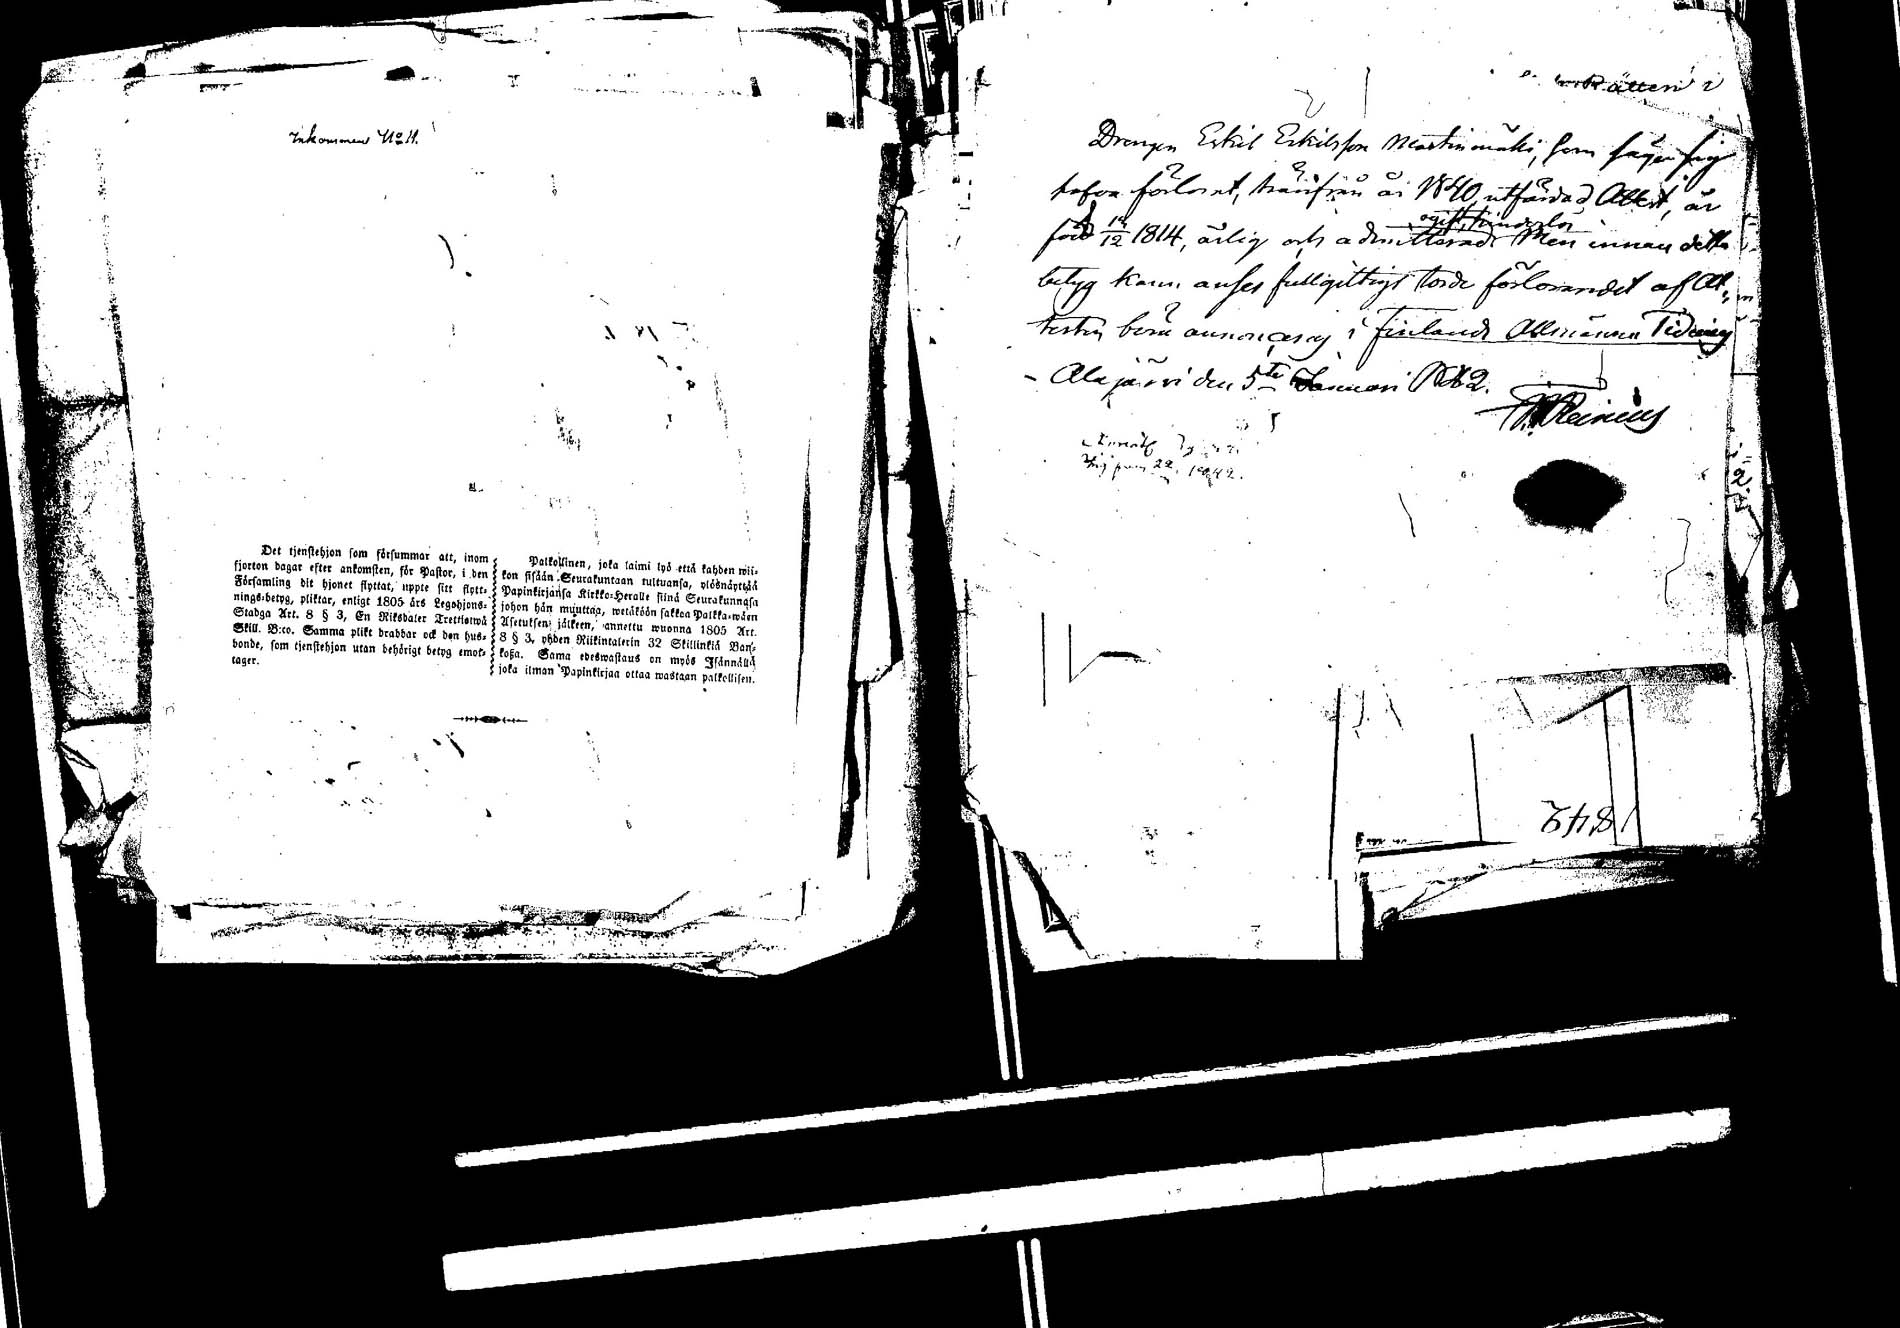 Inkommen No 11.
Det tjenstehjon som försummar att, inom
fjorton dagar efter ankomsten, för Pastor, i den
Församling dit hjonet flyttat, uppte sitt flytt-
nings-betyg, pliktar, enligt 1805 års Legohjons-
Stadga Art. 8 § 3, En Riksdaler Trettiotwå
Skill. B:co. Samma plikt drabbar ock den hus-
bonde, som tjenstehjon utan behörigt betyg emot-
tager.
Palkollinen, joka laimi lyö että kahden wii-
kon sisään Seurakuntaan tultuansa, ylösnäyttää
Papinkirjansa Kirkko-Heralle siinä Seurakunnasa
johon hän muuttaa, wetäköön sakkoa Palkka-wäen
Asetuksen jälkeen, annettu wuonna 1805 Art.
8 § 3, yhden Riikintalerin 32 Skillinkiä Ban-
kosa. Sama edeswastaus on myös Isännällä
joka ilman Papinkirjaa ottaa wastaan palkollisen.
Drengen Eskil Eskilsson Martinmäki, som säger sig
hafva förlorat, härifrån år 1840 utfärdad Attest, är
ogift, hinderlös
född 14/12 1814, ärlig och admitterad. Men innan detta
betyg kann anses fullgiltigt torde förlorandet af At-
testen böra annonceras i Finlands Allmänna Tidning
Alajärvi den 5te Januari 1842.
1842